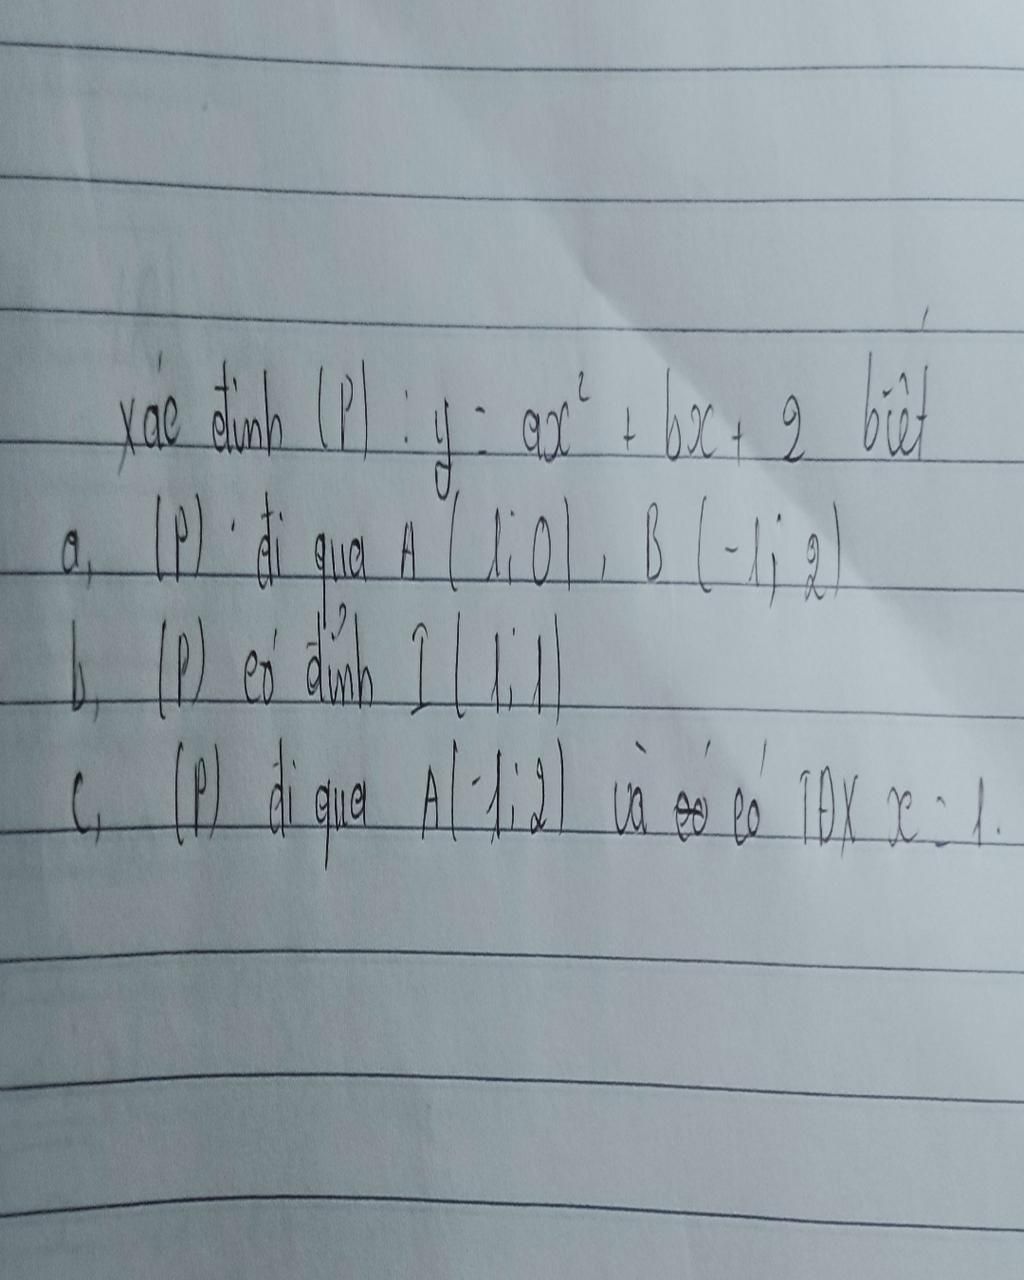 xác định (P) : y = ax² + bx + 2 biết
a, (P) đi qua A (1; 0), B (-1; 2)
b, (P) có đỉnh I (1; 1)
c, (P) đi qua A(-1; 2) và có TĐX x = 1.